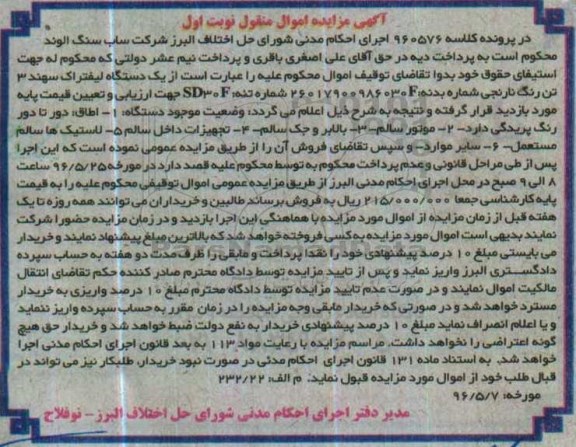 آگهی مزایده اموال منقول نوبت اول
در پرونده کلاسه 960576 اجرای احکام مدنی شورای حل اختلاف البرز شرکت ساب سنگ الوند
محکوم است به پرداخت دیه در حق آقای علی اصغری باقری و پرداخت نیم عشر دولتی که محکوم له جهت
استیفای حقوق خود بدوا تقاضای توقیف اموال محکوم علیه را عبارت است از یک دستگاه لیفتراک سهند 3
تن رنگ نارنجی شماره بدنه: 26017900986030F شماره تنه: SD30F جهت ارزیابی و تعیین قیمت پایه
مورد بازدید قرار گرفته و نتیجه به شرح ذیل اعلام می گردد: وضعیت موجود دستگاه: 1- اطاق: دور تا دور
رنگ پریدگی دارد- 2- موتور سالم- 3- بالابر و جک سالم- 4- تجهیزات داخل سالم 5- لاستیک ها سالم
مستعمل- 6- سایر موارد- و سپس تقاضای فروش آن را از طریق مزایده عمومی نموده است که این اجرا
پس از طی مراحل قانونی و عدم پرداخت محکوم به توسط محکوم علیه قصد دارد در مورخه 96/5/25 ساعت
8 الی 9 صبح در محل اجرای احکام مدنی البرز از طریق مزایده عمومی اموال توقیفی محکوم علیه را به قیمت
پایه کارشناسی جمعا 215/000/000 ریال به فروش برساند طالبین و خریداران می توانند همه روزه تا یک
هفته قبل از زمان مزایده از اموال مورد مزایده با هماهنگی این اجرا بازدید و در زمان مزایده حضورا شرکت
نمایند بدیهی است اموال مورد مزایده به کسی فروخته خواهد شد که بالاترین مبلغ پیشنهاد نمایند و خریدار
می بایستی مبلغ 10 درصد پیشنهادی خود را نقدا پرداخت و مابقی را ظرف مدت دو هفته به حساب سپرده
دادگستری البرز واریز نماید و پس از تایید مزایده توسط دادگاه محترم صادر کننده حکم تقاضای انتقال
مالکیت اموال نمایند و در صورت عدم تایید مزایده توسط دادگاه محترم مبلغ 10 درصد واریزی به خریدار
مسترد خواهد شد و در صورتی که خریدار مابقی وجه مزایده را در زمان مقرر به حساب سپرده واریز ننماید
و یا اعلام انصراف نماید مبلغ 10 درصد پیشنهادی خریدار به نفع دولت ضبط خواهد شد و خریدار حق هیچ
گونه اعتراضی را نخواهد داشت. مراسم مزایده با رعایت مواد 113 به بعد قانون اجرای احکام مدنی اجرا
خواهد شد. به استناد ماده 131 قانون اجرای احکام مدنی در صورت نبود خریدار، طلبکار نیز می تواند در
قبال طلب خود از اموال مورد مزایده قبول نماید: م الف: 232/22
مورخه: 96/5/7
مدیر دفتر اجرای احکام مدنی شورای حل اختلاف البرز- نوفلاح